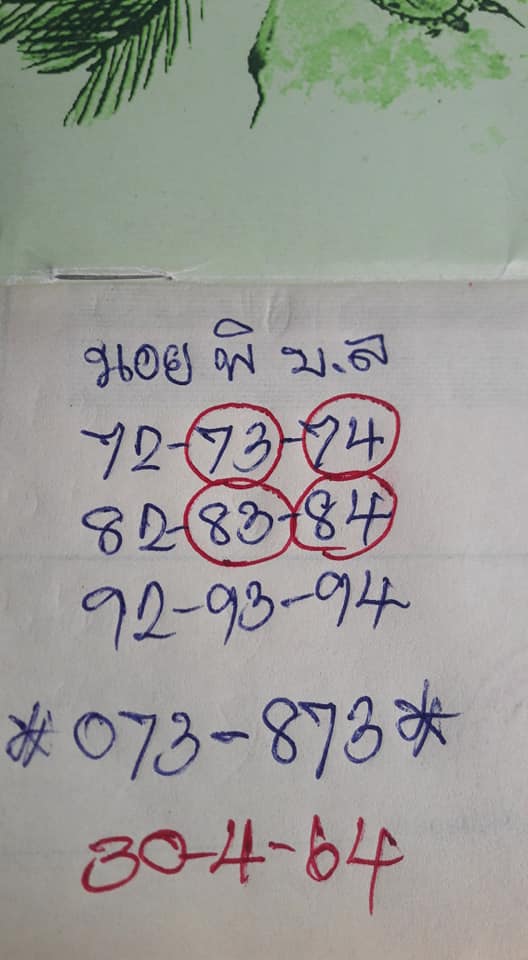 นอย พิ บ.ส
72-73-74
82-83-84
92-93-94
*073-873*
30-4-64